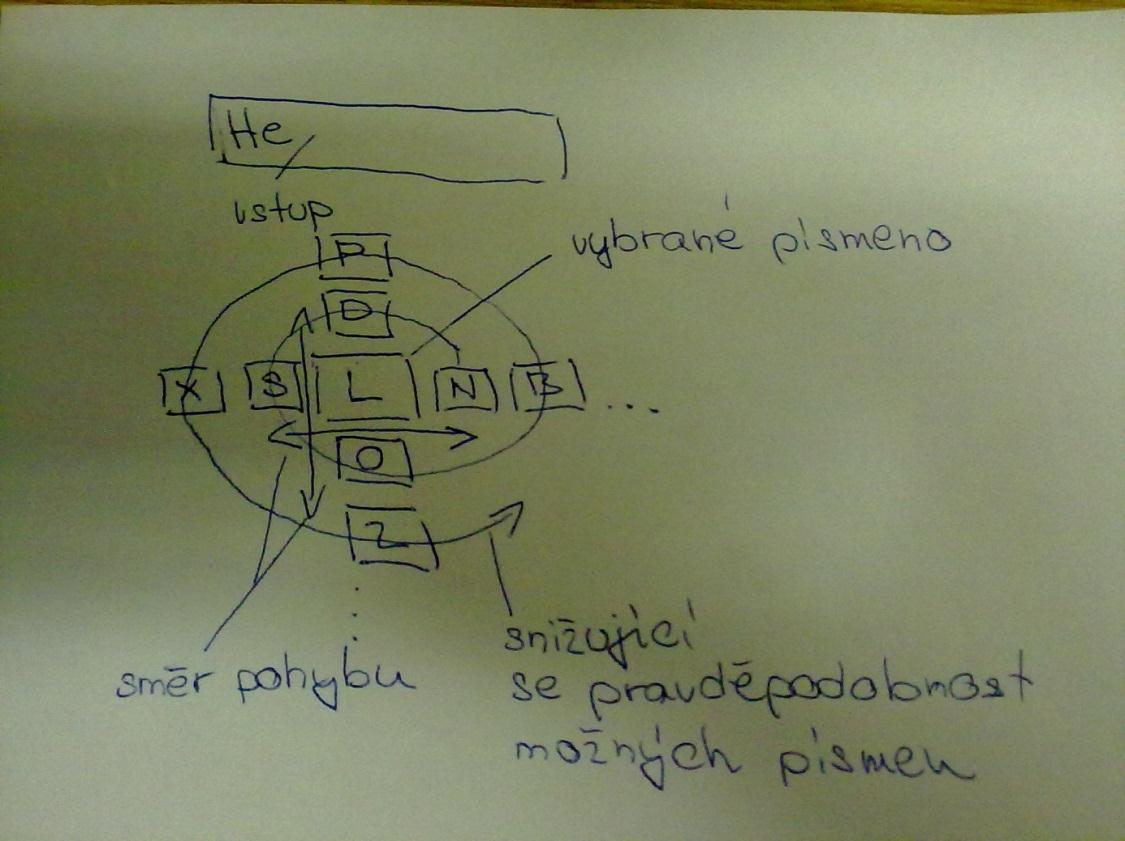 He
vstup
vybrané písmeno
P
D
X S L N B ...
O
Z
snižující
směr pohybu
se pravděpodobnost
možných písmen